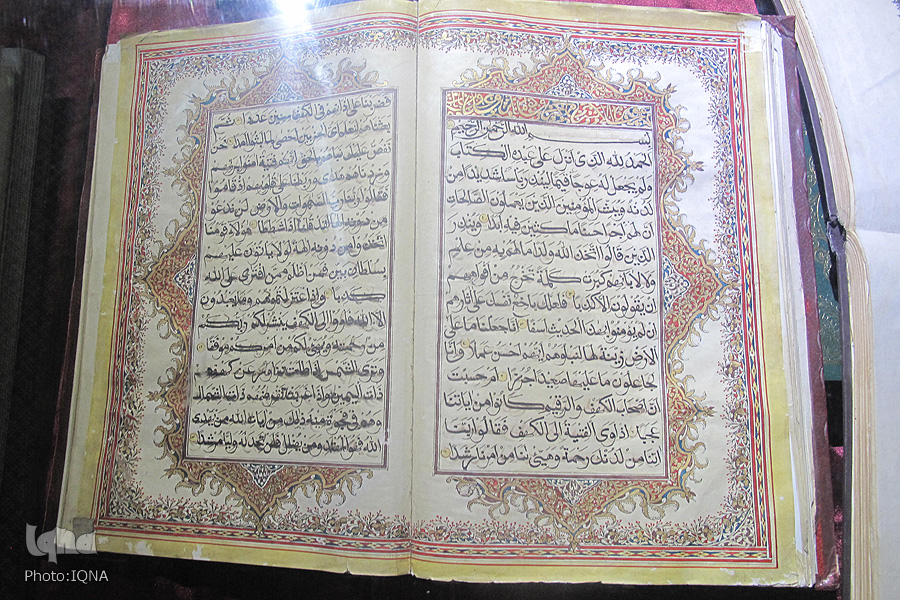 بسم الله الرحمن الرحيم
الحمد لله الذي انزل على عبده الكتاب
ولم يجعل له عوجا قيما لينذر باسا شديدا من
لدنه ويبشر المؤمنين الذين يعملون الصالحات
ان لهم اجرا حسنا ماكثين فيه ابدا وينذر
الذين قالوا اتخذ الله ولدا ما لهم به من علم
ولا لابائهم كبرت كلمة تخرج من افواههم
ان يقولون الا كذبا فلعلك باخع نفسك على اثارهم
ان لم يؤمنوا بهذا الحديث اسفا انا جعلنا ما على
الارض زينة لها لنبلوهم ايهم احسن عملا وانا
لجاعلون ما عليها صعيدا جرزا ام حسبت
ان اصحاب الكهف والرقيم كانوا من اياتنا
عجبا اذ اوى الفتية الى الكهف فقالوا ربنا
اتنا من لدنك رحمة وهيئ لنا من امرنا رشدا
فضربنا على اذانهم في الكهف سنين عددا ثم
بعثناهم لنعلم اي الحزبين احصى لما لبثوا امدا نحن
نقص عليك نباهم بالحق انهم فتية امنوا بربهم
وزدناهم هدى وربطنا على قلوبهم اذ قاموا
فقالوا ربنا رب السموات والارض لن ندعو
من دونه الها لقد قلنا اذا شططا هؤلاء قومنا
اتخذوا من دونه الهة لولا ياتون عليهم
بسلطان بين فمن اظلم ممن افترى على الله
كذبا واذ اعتزلتموهم وما يعبدون
الا الله فاووا الى الكهف ينشر لكم ربكم
من رحمته ويهيئ لكم من امركم مرفقا
وترى الشمس اذا طلعت تزاور عن كهفهم
ذات اليمين واذا غربت تقرضهم ذات الشمال
وهم في فجوة منه ذلك من ايات الله من يهدي
الله فهو المهتد ومن يضلل فلن تجد له وليا مرشدا
iqna
Photo:IQNA